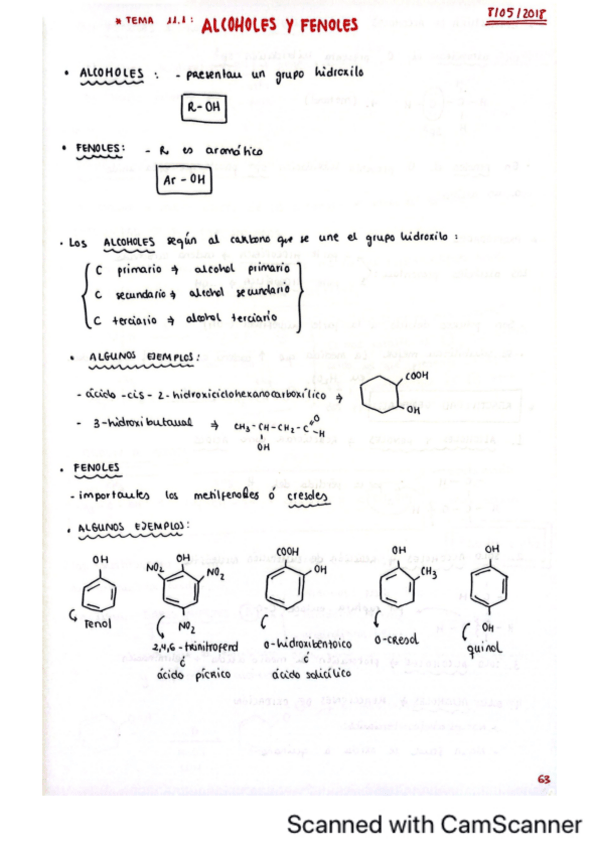 * TEMA 11.1: ALCOHOLES Y FENOLES
8/05/2018
• ALCOHOLES: - presentan un grupo hidroxilo
R-OH
• FENOLES: - R es aromático
Ar-OH
• Los ALCOHOLES según al carbono que se une el grupo hidroxilo:
C primario → alcohol primario
C secundario → alcohol secundario
C terciario → alcohol terciario
• ALGUNOS EJEMPLOS:
- ácido -cis-2-hidroxiciclohexanocarboxílico →
COOH
OH
- 3-hidroxibutanal → CH3-CH-CH2-C
O
H
OH
• FENOLES
- importantes los metilfenoles ó cresoles
• ALGUNOS EJEMPLOS:
OH
fenol
NO2 OH NO2
NO2
2,4,6-trinitrofenol
ó
ácido pícrico
COOH
OH
o-hidroxibenzoico
ó
ácido salicílico
OH
CH3
o-cresol
OH
OH
quinol
63
Scanned with CamScanner